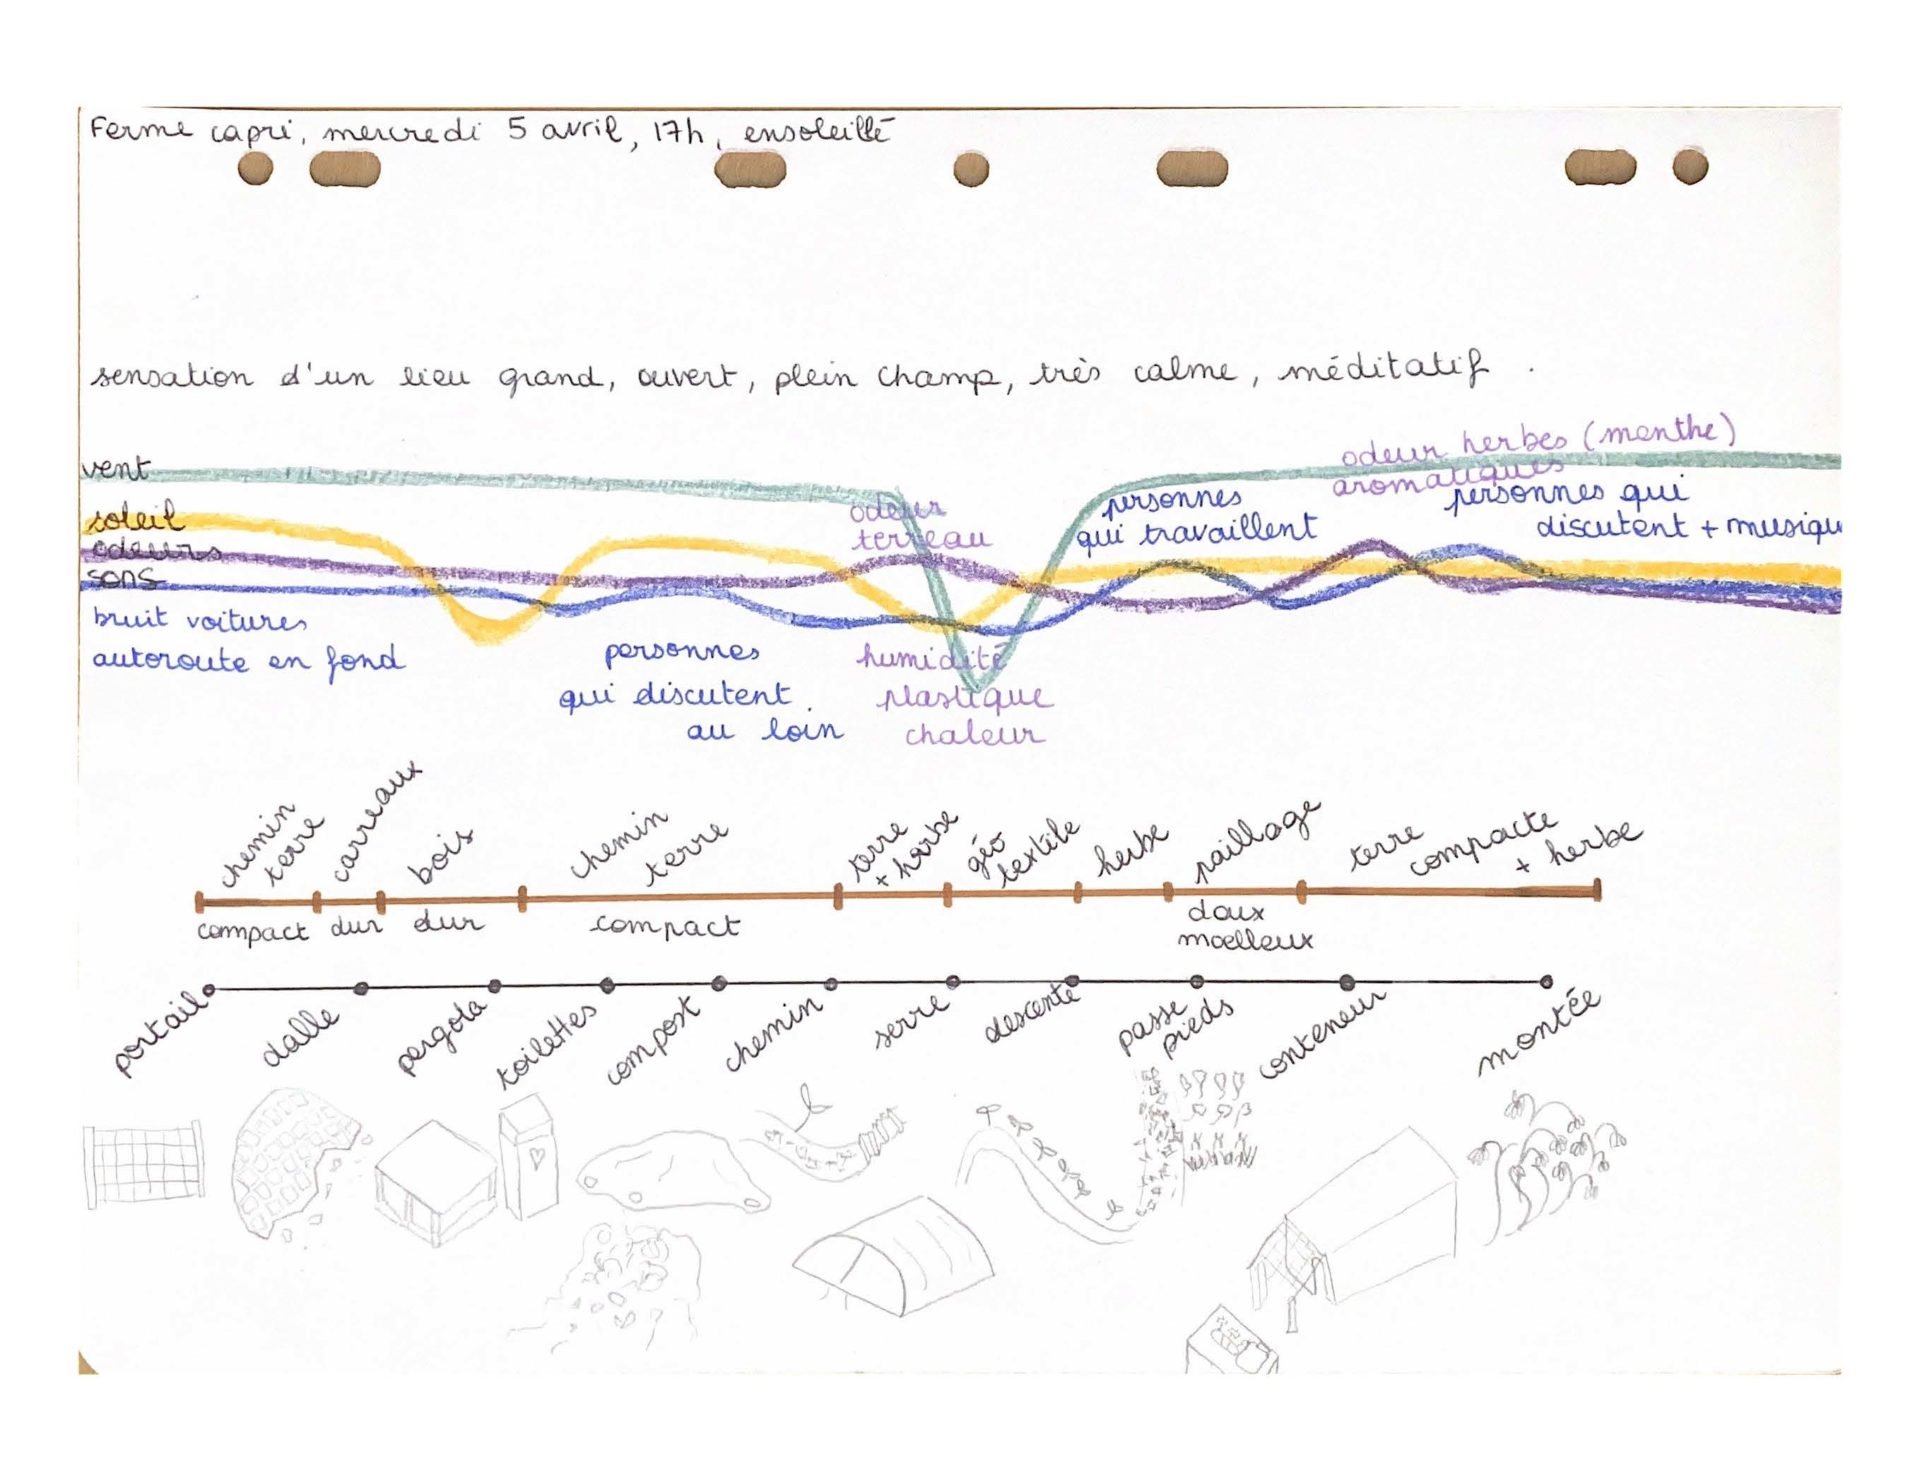 Ferme capri, mercredi 5 avril, 17h, ensoleillé
sensation d'un lieu grand, ouvert, plein champ, très calme, méditatif.
vent
soleil
odeurs
sons
bruit voitures
autoroute en fond
personnes
qui discutent
au loin
odeur
terreau
humidité
plastique
chaleur
personnes
qui travaillent
odeur herbes (menthe)
aromatiques
personnes qui
discutent + musiqu
chemin
terre
carreaux
bois
chemin
terre
terre
+ herbe
géo
textile
herbe
paillage
terre
compacte
+ herbe
compact
dur
dur
compact
doux
moelleux
portail
dalle
pergola
toilettes
compost
chemin
serre
descente
passe
pieds
conteneur
montée